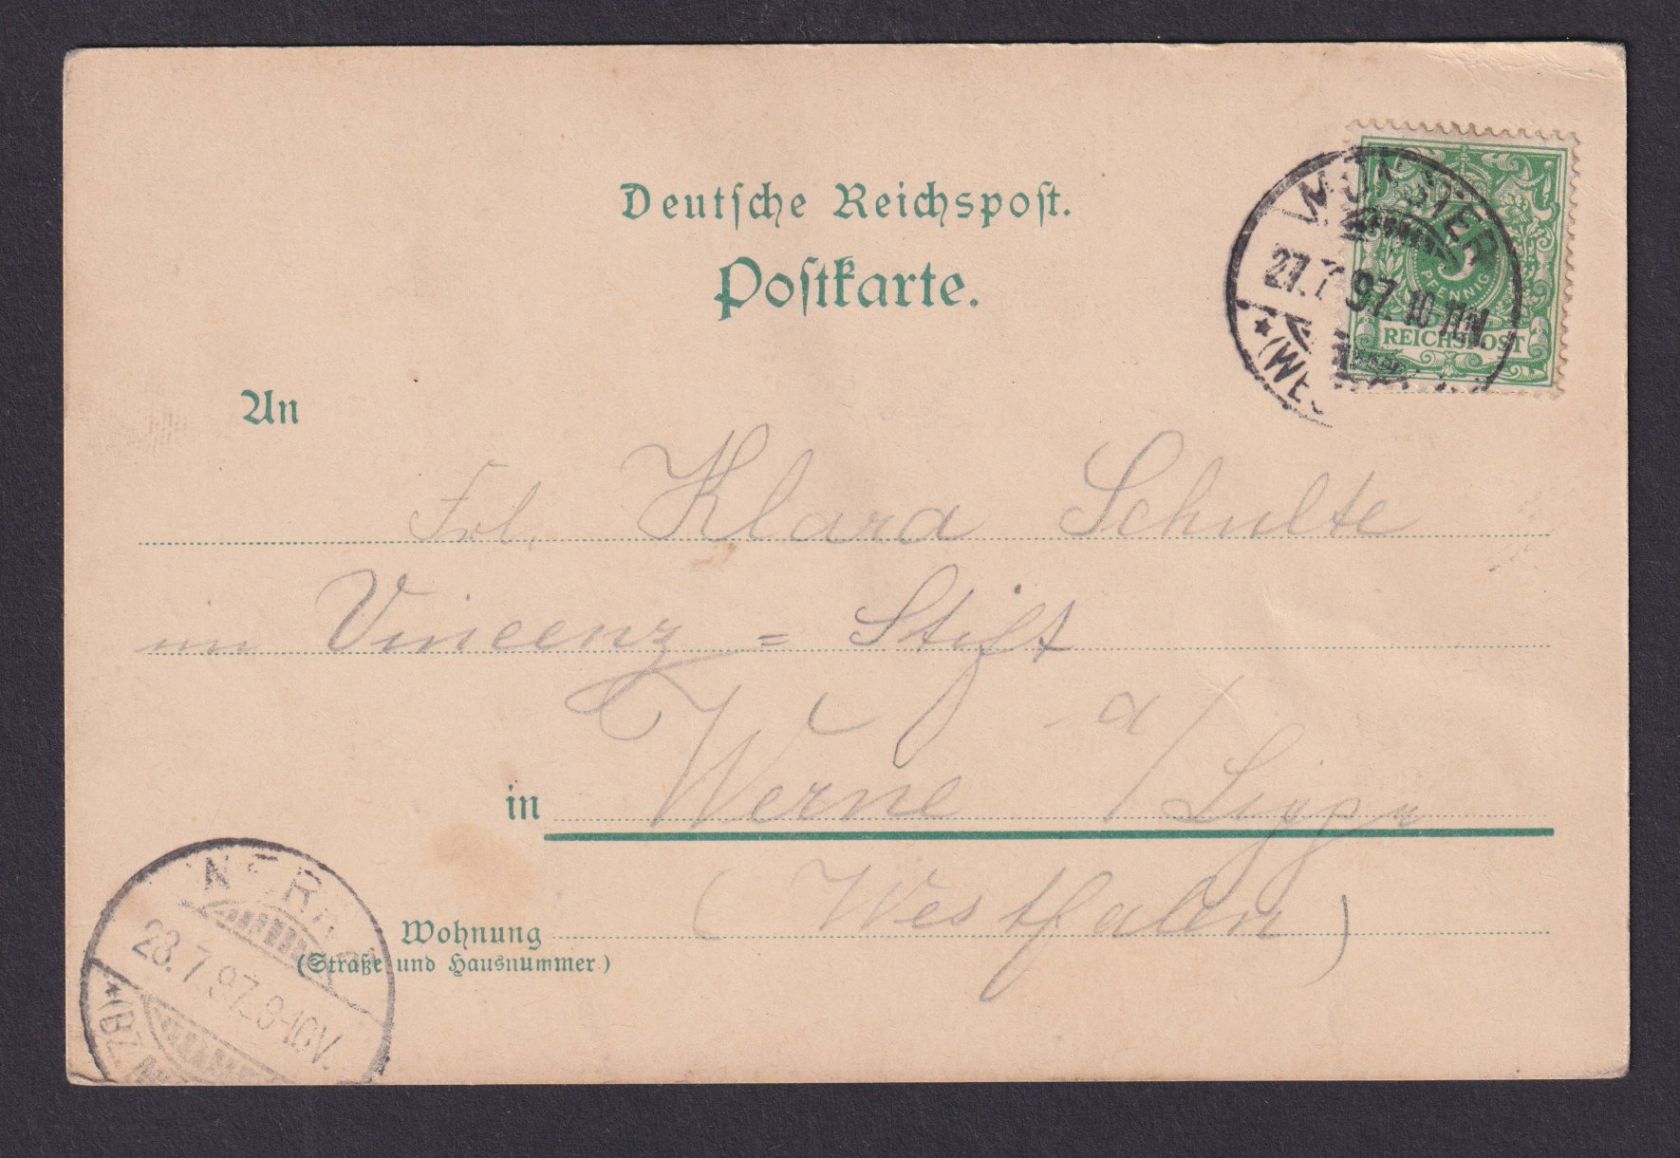 Deutsche Reichspost.
Postkarte.
MÜNSTER
27.7.97. 10-11N.
*(WES
5
PFENNIG
REICHSPOST
An
Frl. Klara Schulte
im Vincenz=Stift
in Werne a/Lippe
(Westfalen)
Wohnung
(Straße und Hausnummer)
WERNE
28.7.97. 9-10V.
*(BZ